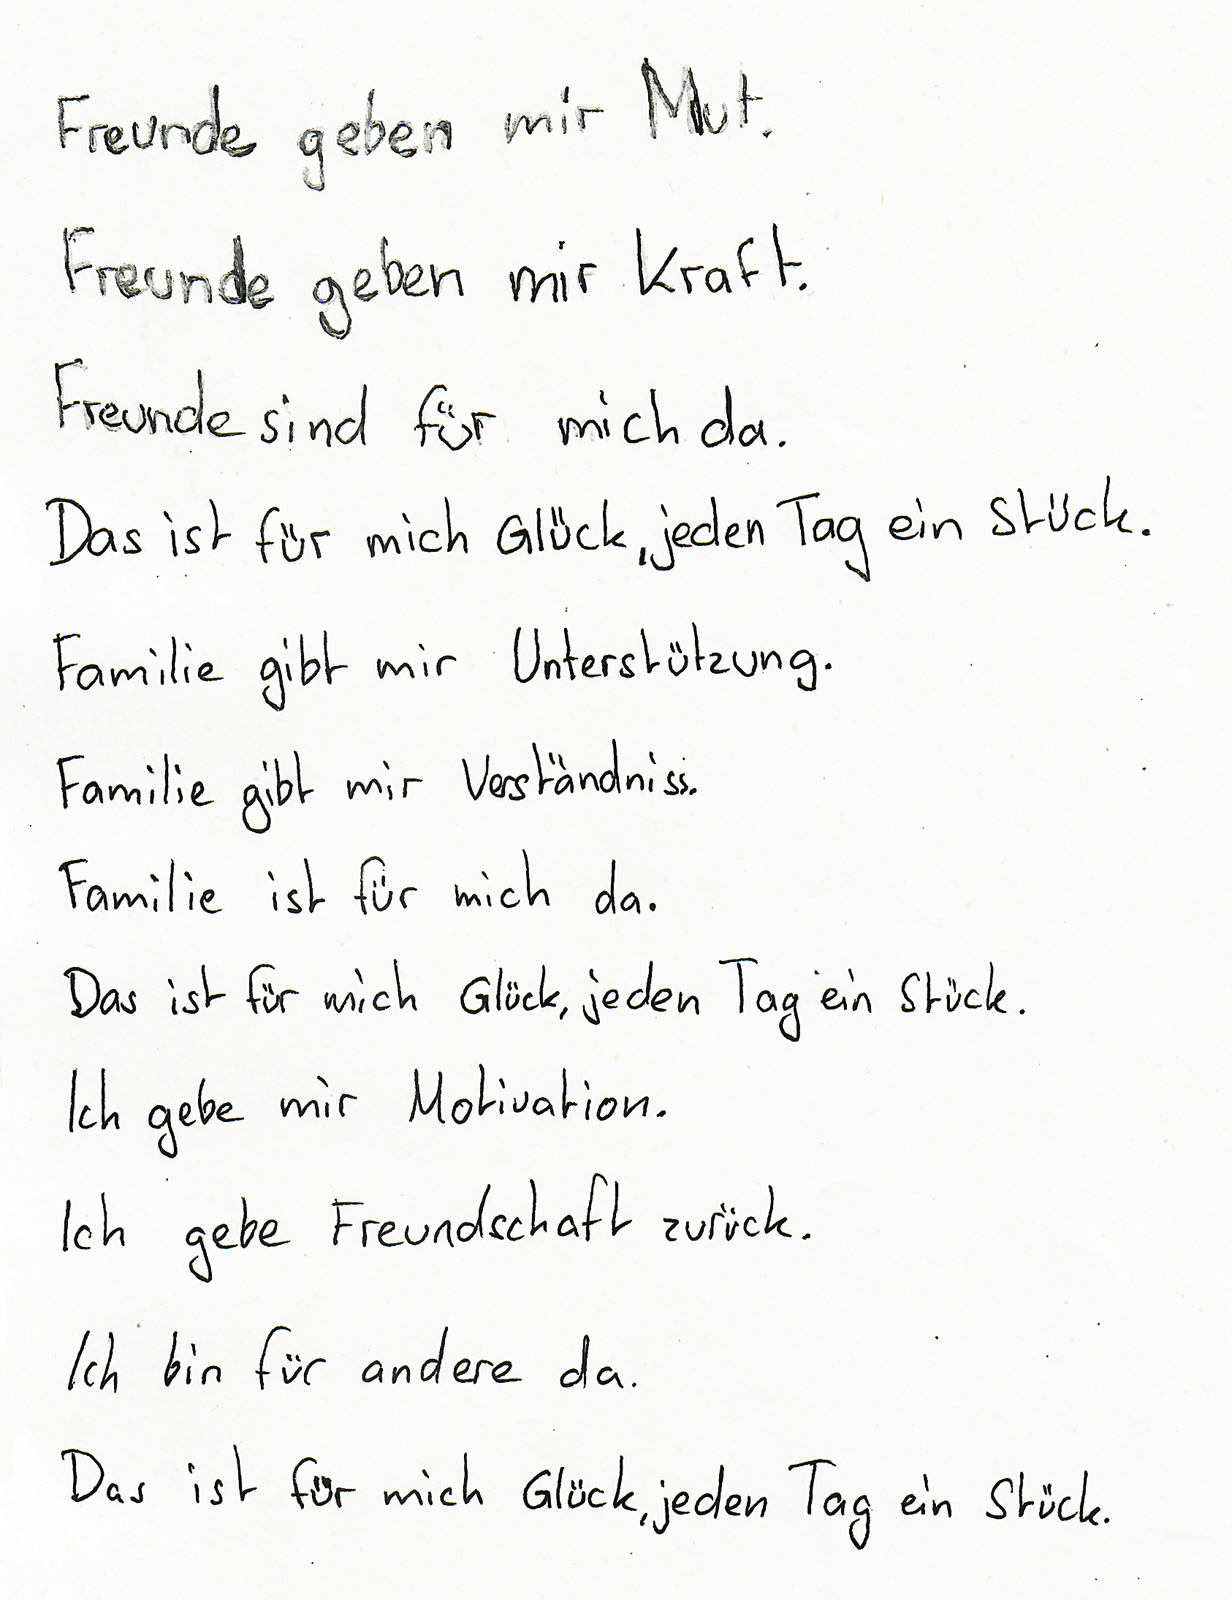 Freunde geben mir Mut.
Freunde geben mir Kraft.
Freunde sind für mich da.
Das ist für mich Glück, jeden Tag ein Stück.
Familie gibt mir Unterstützung.
Familie gibt mir Verständniss.
Familie ist für mich da.
Das ist für mich Glück, jeden Tag ein Stück.
Ich gebe mir Motivation.
Ich gebe Freundschaft zurück.
Ich bin für andere da.
Das ist für mich Glück, jeden Tag ein Stück.